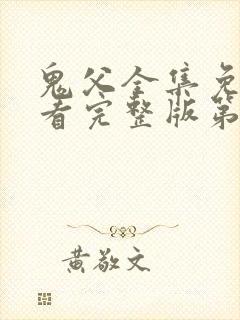 鬼父全集免
看完整版第
黄敬文